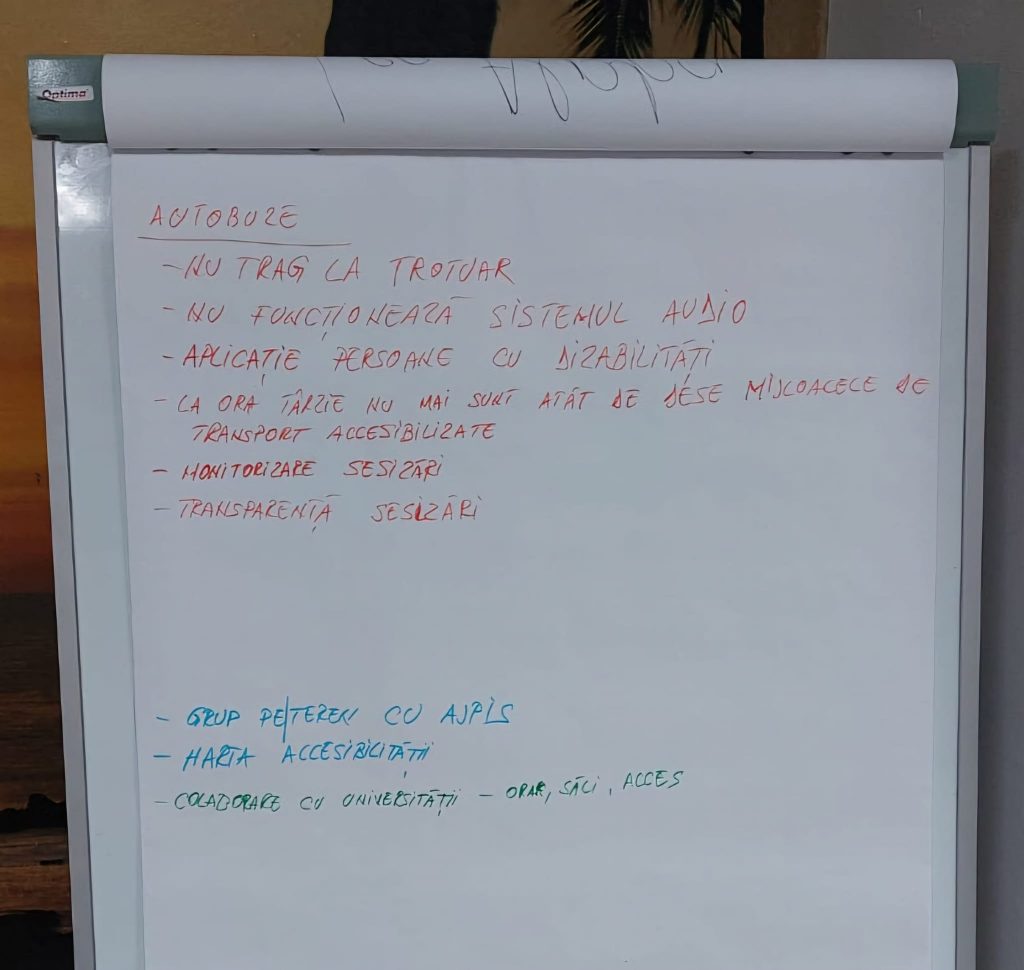 Optima
AUTOBUZE
- NU TRAG LA TROTUAR
- NU FUNCȚIONEAZĂ SISTEMUL AUDIO
- APLICAȚIE PERSOANE CU DIZABILITĂȚI
- LA ORA TÂRZIE NU MAI SUNT ATÂT DE DESE MIJLOACELE DE
TRANSPORT ACCESIBILIZATE
- MONITORIZARE SESIZĂRI
- TRANSPARENȚĂ SESIZĂRI
- GRUP PE|TEREN CU AJPIS
- HARTA ACCESIBILITĂȚII
- COLABORARE CU UNIVERSITĂȚII - ORAR, SĂLI, ACCES